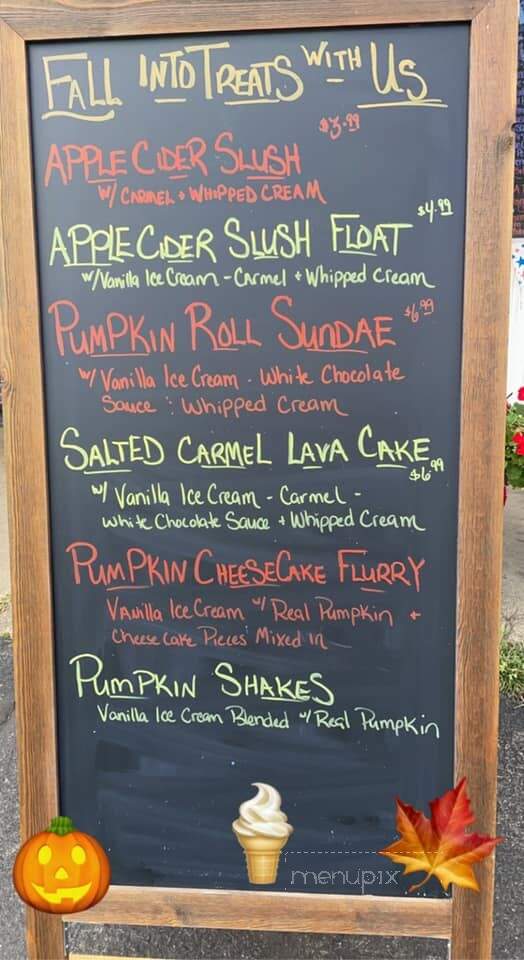 FALL INTO TREATS WITH US
$3.99
APPLE CIDER SLUSH
w/ CARMEL + WHIPPED CREAM
$4.99
APPLE CIDER SLUSH FLOAT
w/ Vanilla Ice Cream - Carmel + Whipped Cream
PUMPKIN ROLL SUNDAE $6.99
w/ Vanilla Ice Cream - White Chocolate
Sauce : Whipped Cream
SALTED CARMEL LAVA CAKE
$6.99
w/ Vanilla Ice Cream - Carmel -
White Chocolate Sauce + Whipped Cream
PUMPKIN CHEESECAKE FLURRY
Vanilla Ice Cream w/ Real Pumpkin +
Cheese Cake Pieces Mixed In
PUMPKIN SHAKES
Vanilla Ice Cream Blended w/ Real Pumpkin
menupix